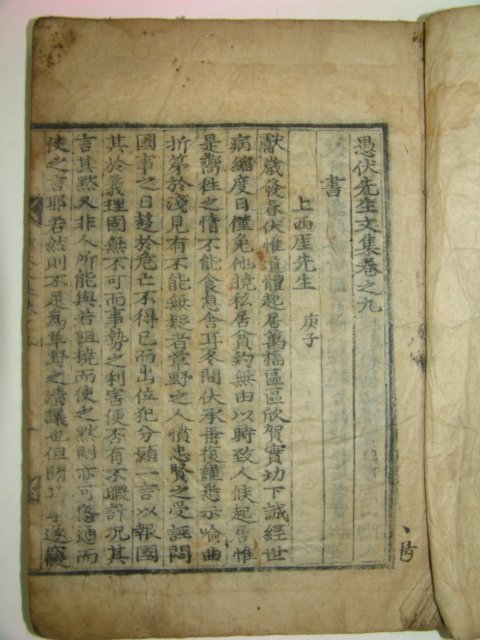 愚伏先生文集卷之九
書
上西厓先生 庚子
獻歲發春伏惟道體起居萬福區區欣賀實切下誠經世
病縮度日僅免他撓私居貧約無由以時致人候起居惟
是嚮往之情不能食息舍耳冬間伏承垂復謹悉示喩曲
折第於淺見有不能無疑者草野之人憤忠賢之受誣悶
國事之日趍於危亡不得已而出位犯分顉一言以報國
其於義理固無不可而事勢之利害便否有不暇許況其
言其默又非人所能與若阻撓而使之默則亦可慫逎而
使之言耶若然則不足爲草野之淸議也但聞 遂竊